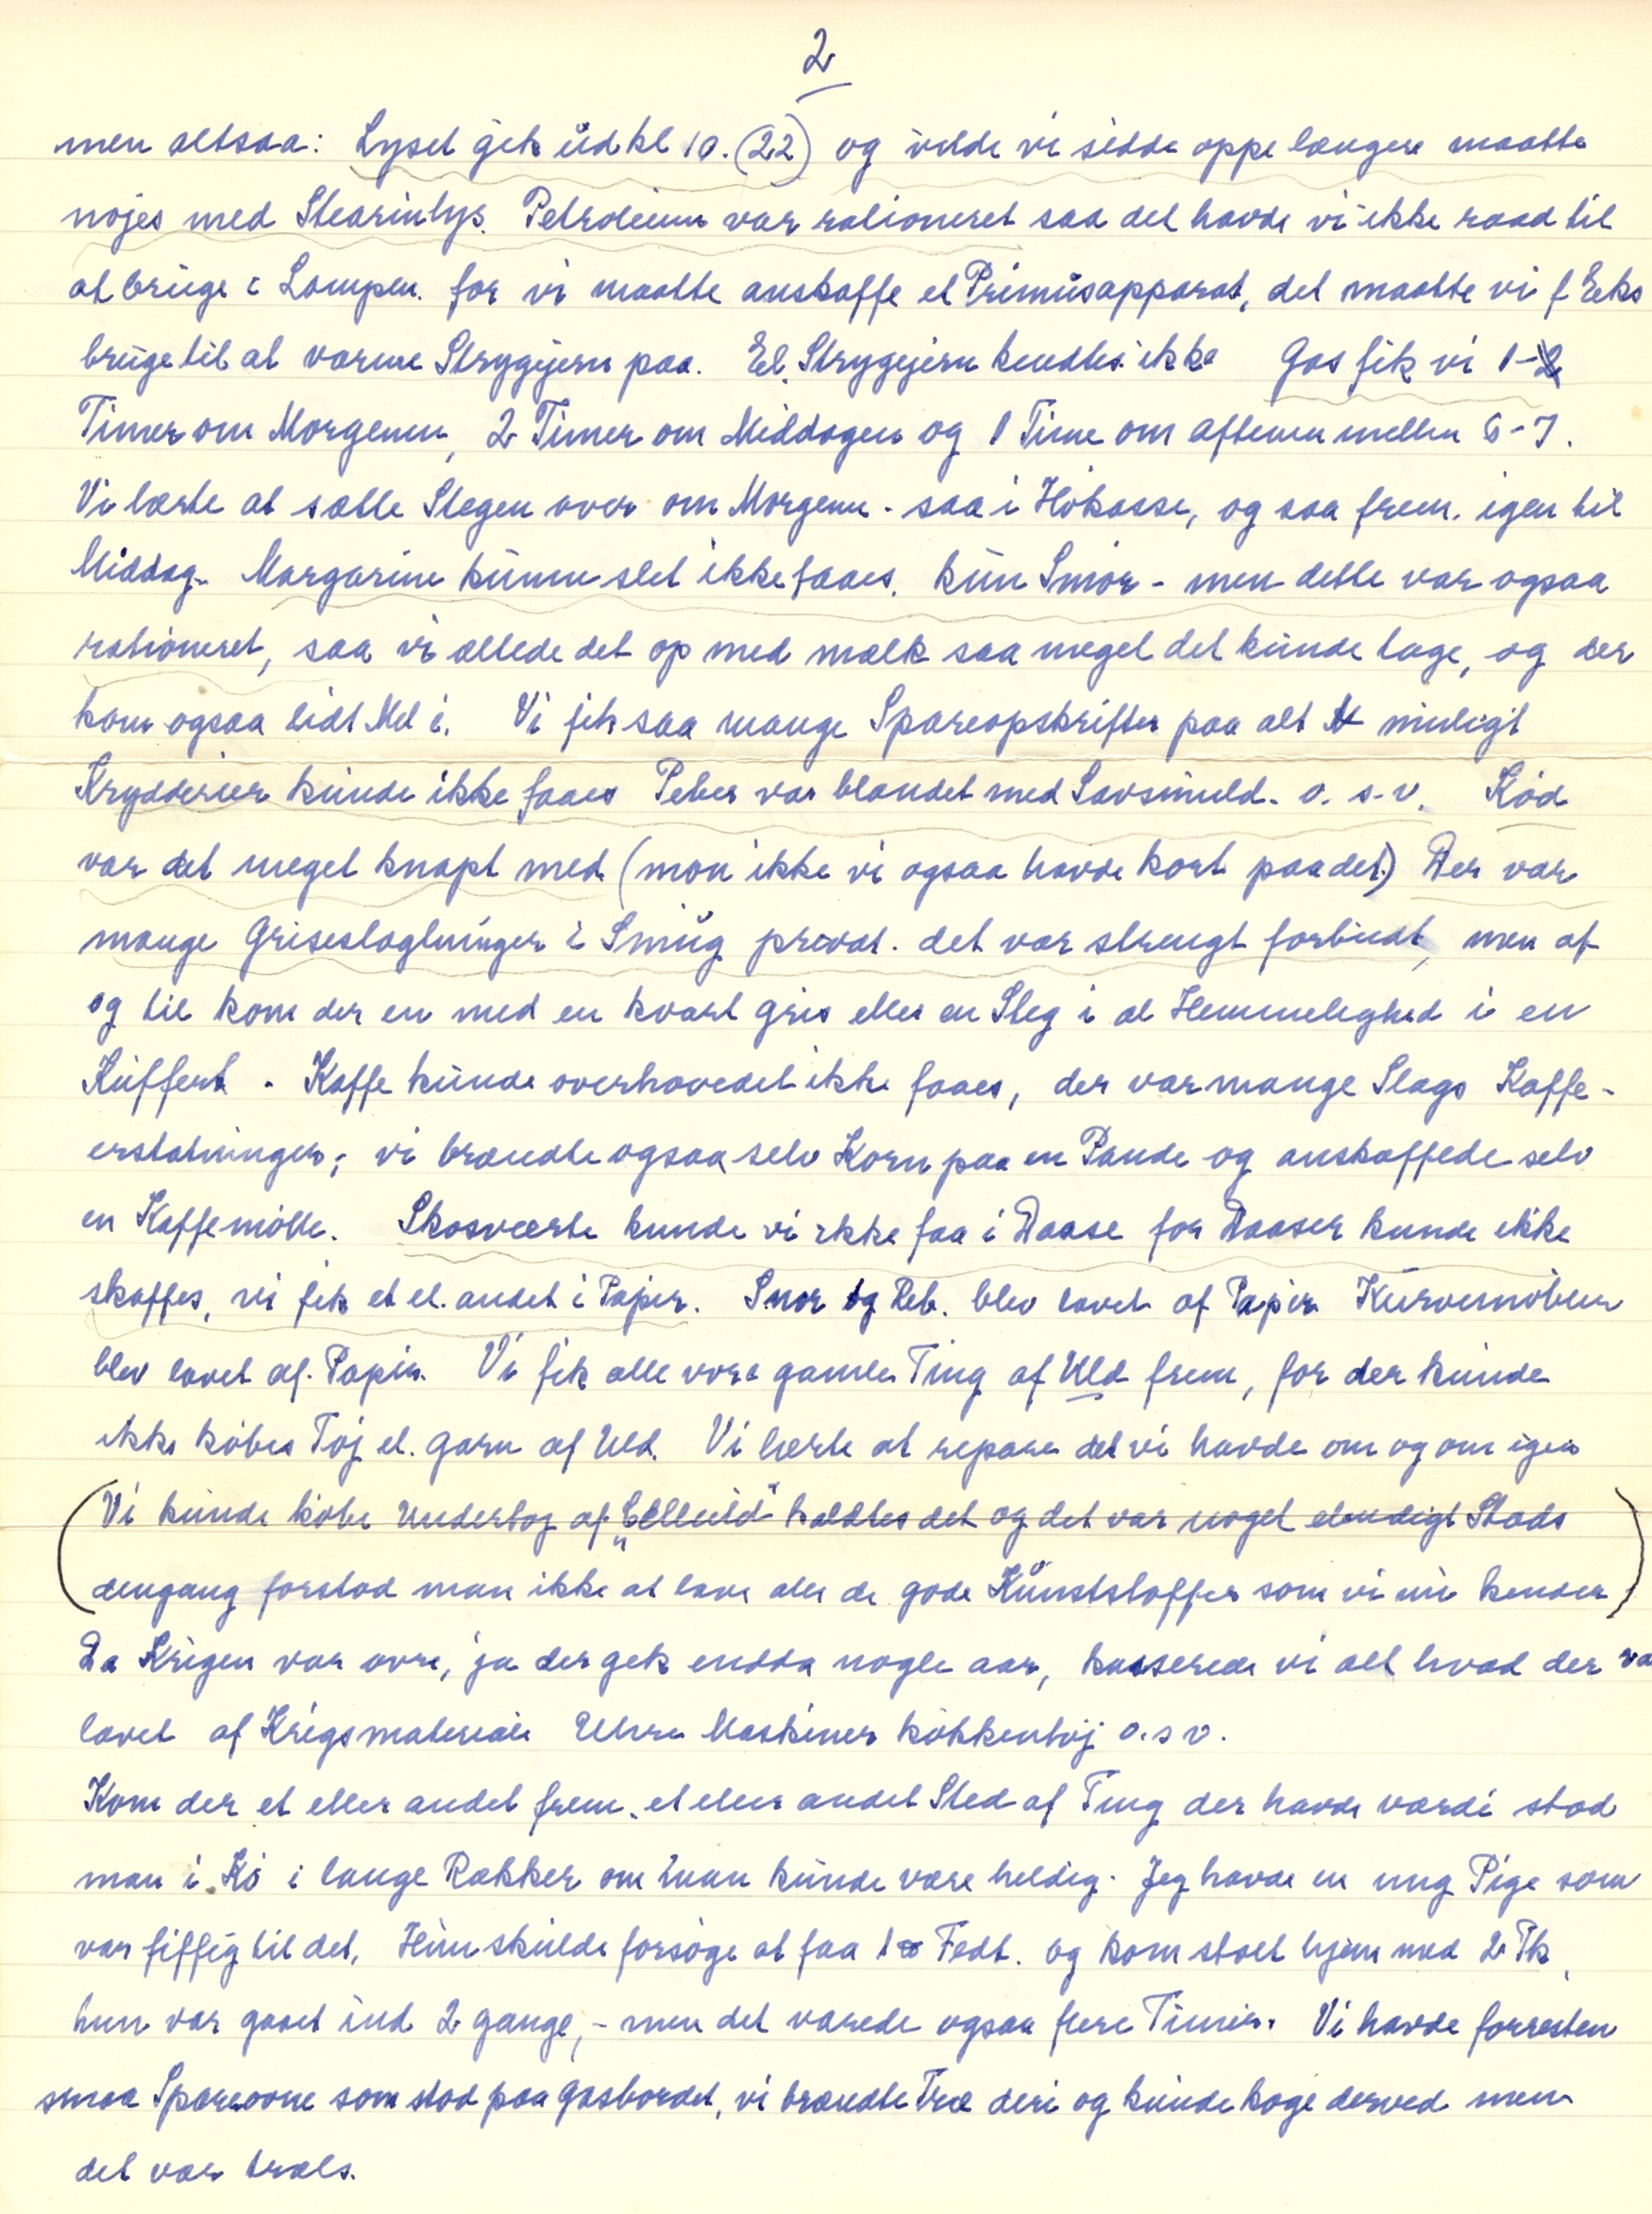 2
men altsaa: Lyset gik ud kl 10. (22) og vilde vi sidde oppe længere maatte
nøjes med Stearinlys. Petroleum var rationeret saa det havde vi ikke raad til
at bruge i Lampen. for vi maatte anskaffe et Primusapparat, det maatte vi f Eks
bruge til at varme Strygejern paa. El. Strygejern kendtes ikke Gas fik vi 1-2
Timer om Morgenen, 2 Timer om Middagen og 1 Time om aftenen mellem 6-7.
Vi lærte at sætte Stegen over om Morgenen - saa i Høkasse, og saa frem. igen til
Middag. Margarine kunne slet ikke faaes. kun Smør - men dette var ogsaa
rationeret, saa vi æltede det op med mælk saa meget det kunde tage, og der
kom ogsaa lidt Mel i. Vi fik saa mange Spareopskrifter paa alt muligt
Krydderier kunde ikke faaes Peber var blandet med Savsmuld. o. s. v. Kød
var det meget knapt med (mon ikke vi ogsaa havde kort paa det.) Der var
mange Griseslagtninger i Smug privat. det var strengt forbudt, men af
og til kom der en med en kvart gris eller en Steg i al Hemmelighed i en
Kuffert. Kaffe kunde overhovedet ikke faaes, der var mange Slags Kaffe-
erstatninger; vi brændte ogsaa selv Korn paa en Pande og anskaffede selv
en Kaffemølle. Skosværte kunde vi ikke faa i Daase for Daaser kunde ikke
skaffes, vi fik et el. andet i Papir. Snor og Reb. blev lavet af Papir Kurvemøbler
blev lavet af. Papir. Vi fik alle vore gamle Ting af Uld frem, for der kunde
ikke købes Tøj el. garn af Uld. Vi lærte at repare det vi havde om og om igen
(Vi kunde købe Undertøj af „Celleuld" kaldtes det og det var noget elendigt Stads
dengang forstod man ikke at lave alle de gode Kunststoffer som vi nu kender)
Da Krigen var ovre, ja der gik endda nogle aar, kasserede vi alt hvad der va
lavet af Krigsmateriale Uhre Maskiner køkkentøj o. s v.
Kom der et eller andet frem. et eller andet Sted af Ting der havde værdi stod
man i Kø i lange Rækker om man kunde være heldig. Jeg havde en ung Pige som
var fiffig til det. Hun skulde forsøge at faa 1 Fedt. og kom stolt hjem med 2 Pk,
hun var gaaet ind 2 gange, - men det varede ogsaa flere Timer. Vi havde forresten
smaa Spareovne som stod paa gasbordet, vi brændte Træ deri og kunde koge derved men
det var træls.